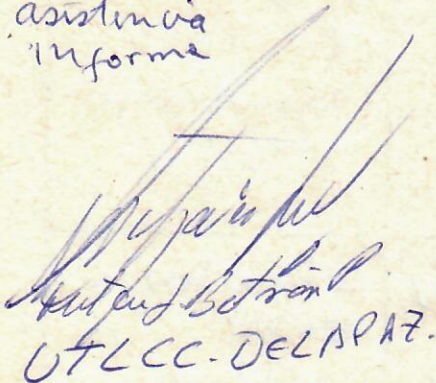 asistencia
informe
Beltrán P.
UTLCC. DELAPAZ.